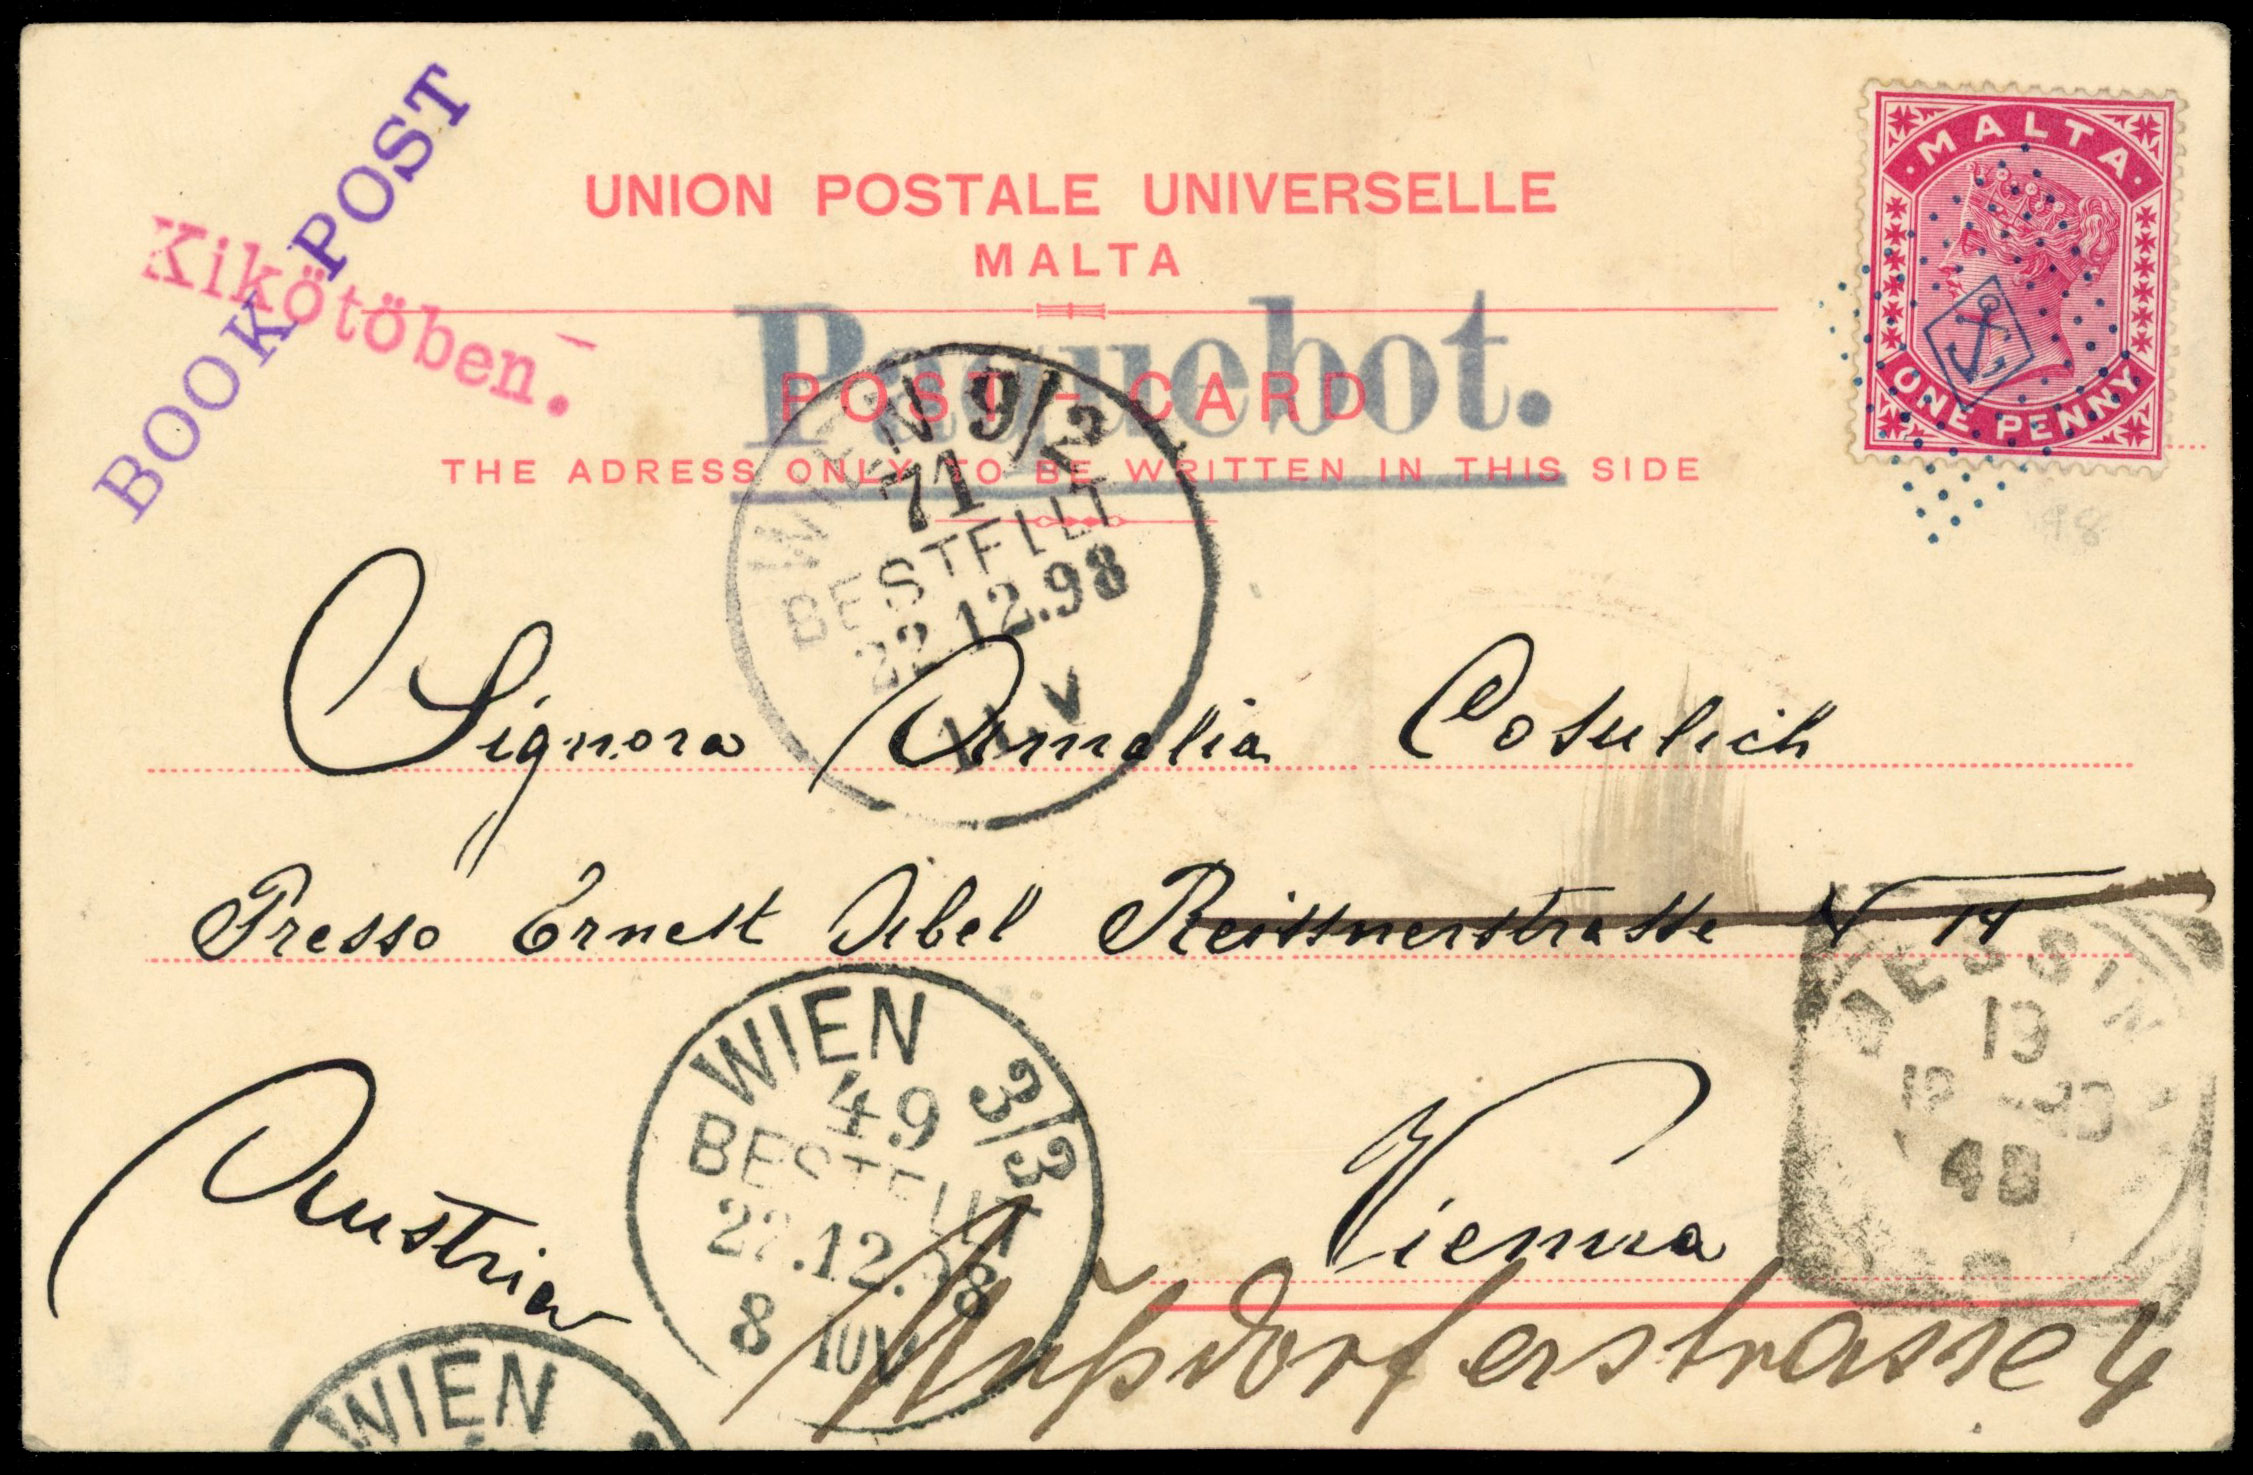 BOOK POST
Kikötöben.
UNION POSTALE UNIVERSELLE
MALTA
Paquebot.
POST-CARD
THE ADRESS ONLY TO BE WRITTEN IN THIS SIDE
MALTA
ONE PENNY
48
WIEN 9/2
71
BESTELLT
22.12.98
V
Signora Amelia Cosulich
Presso Ernest Sibel Reissnerstrasse N 14
MESSINA
19
12
WIEN 3/3
49
BESTELLT
22.12.98
8
Vienna
Austria
Nußdorferstrasse 4
WIEN